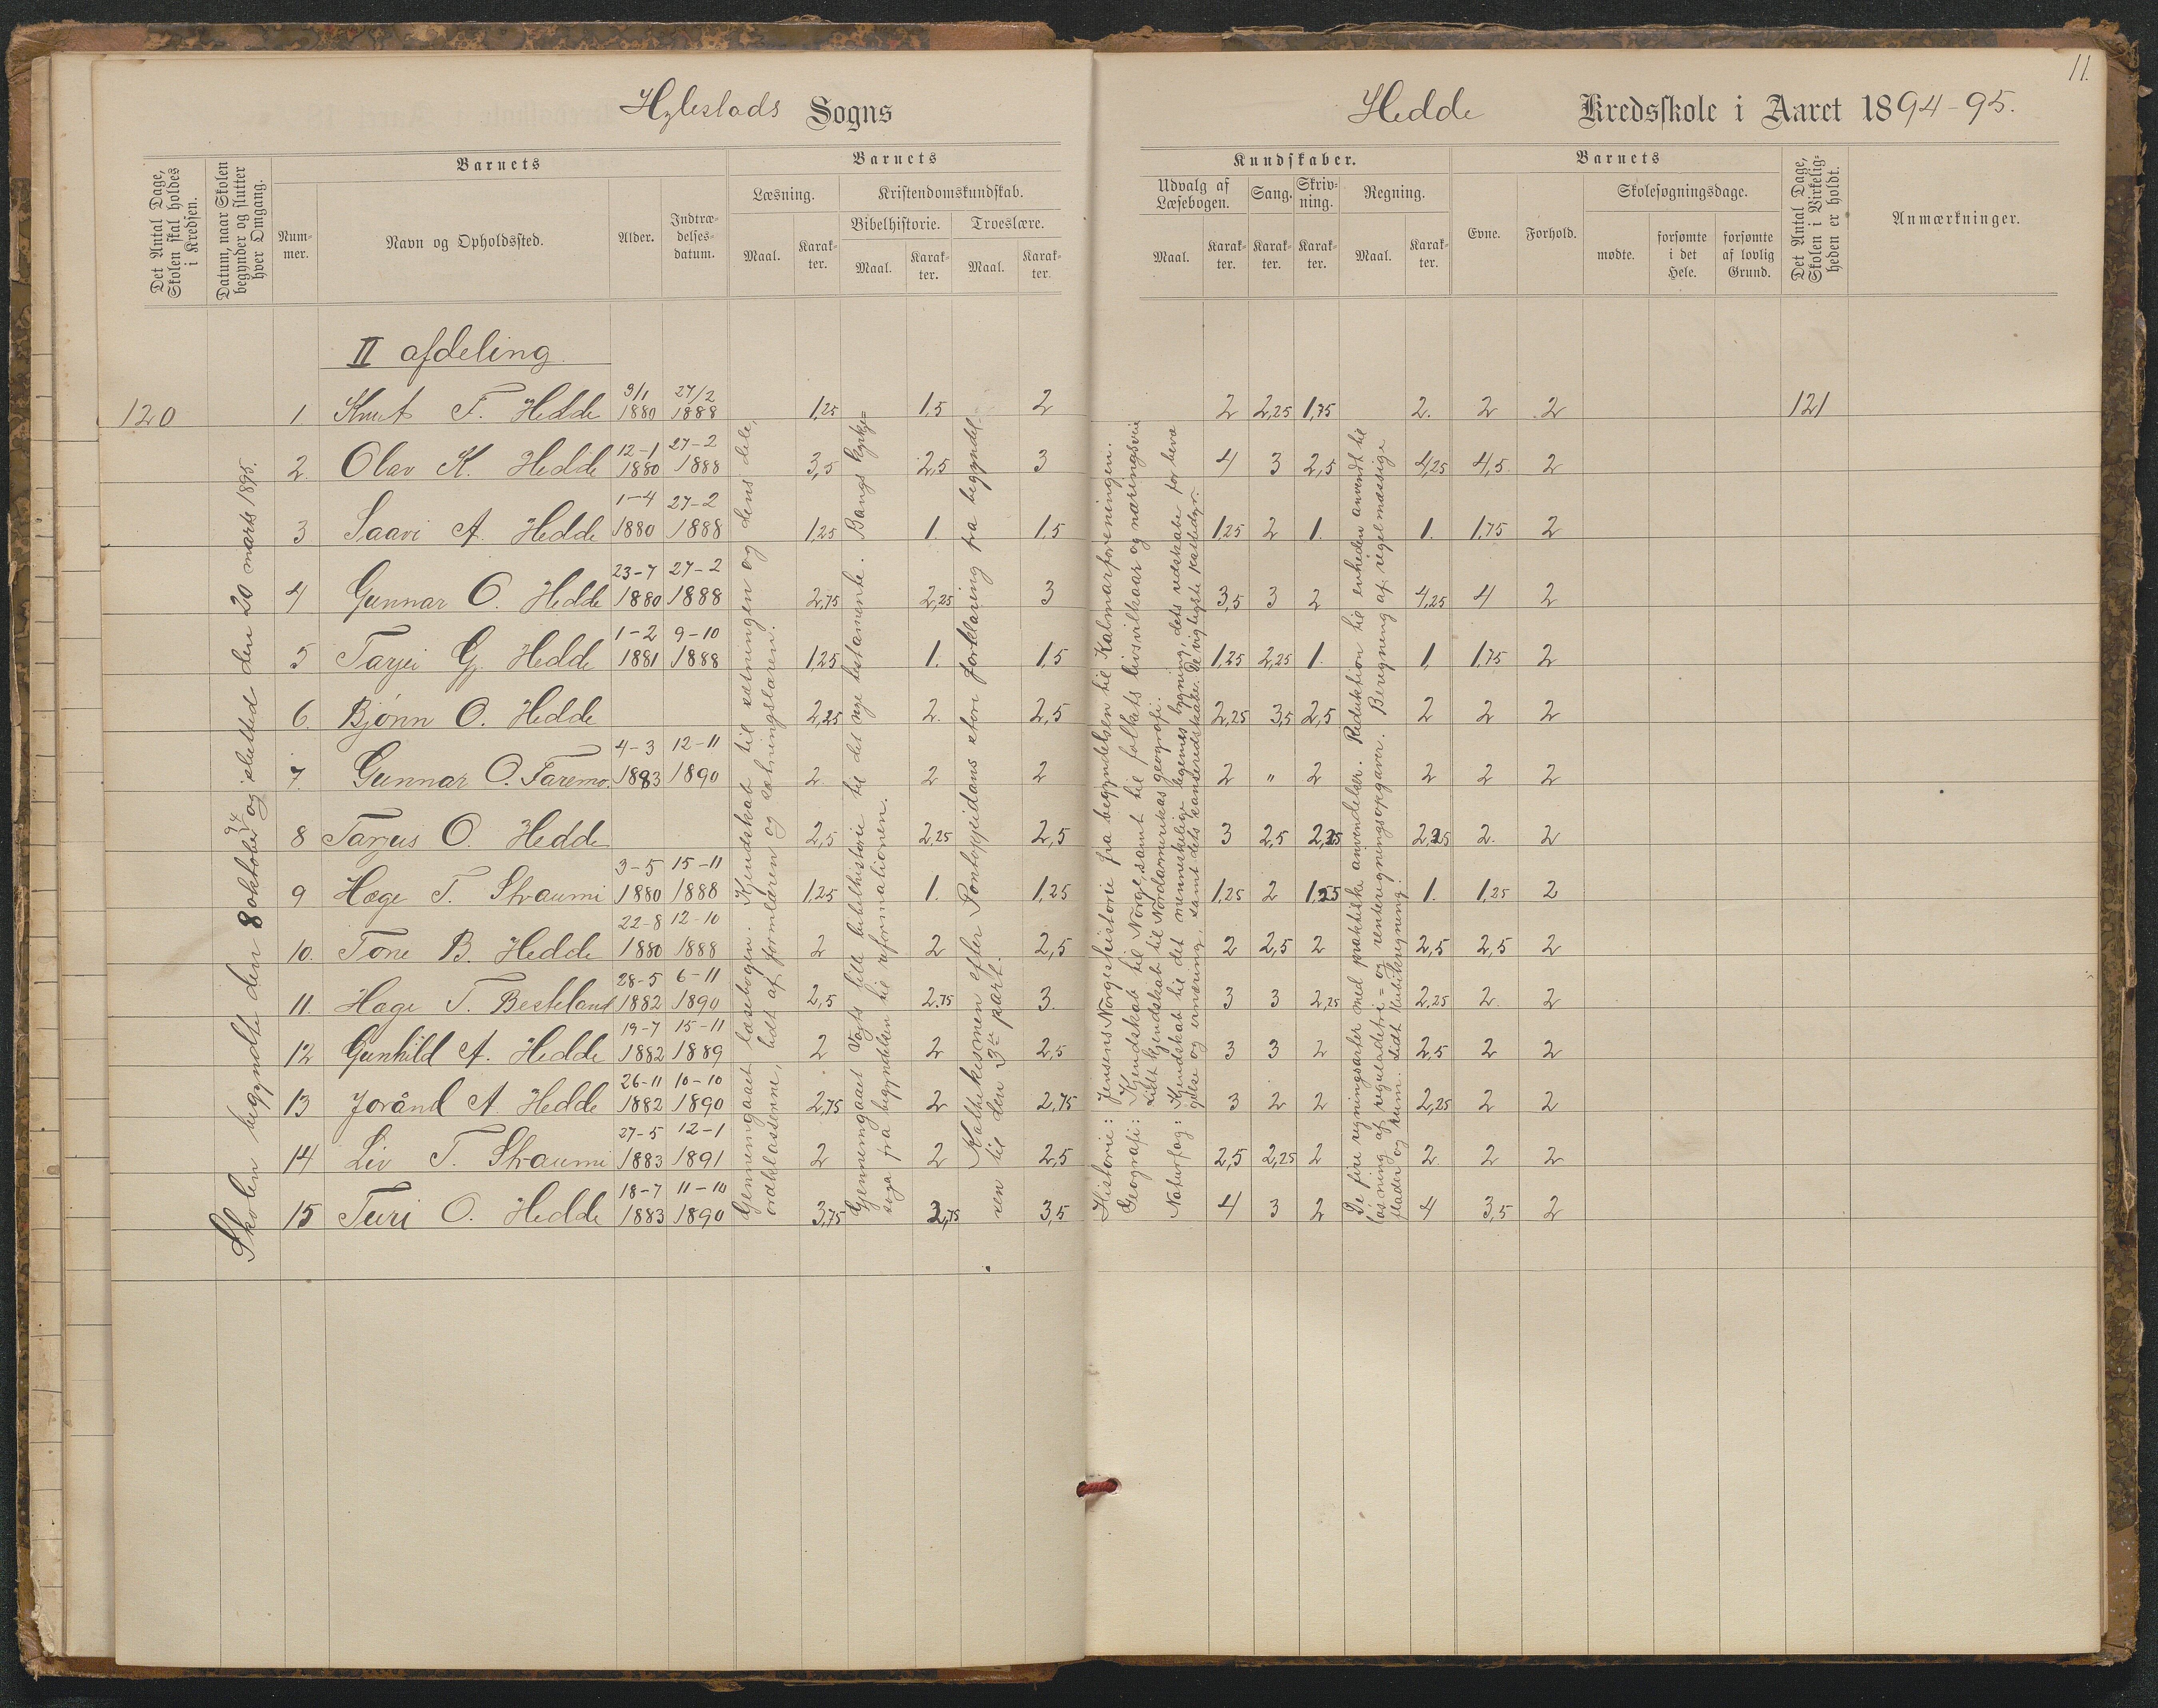 11.
Hylestads Sogns
Hedde Kredsskole i Aaret 1894-95.
Det Antal Dage, Skolen skal holdes i Kredsen.
Datum, naar Skolen begynder og slutter hver Omgang.
Barnets
Nummer.
Navn og Opholdssted.
Alder.
Indtrædelsesdatum.
Barnets
Læsning.
Maal.
Karakter.
Kristendomskundskab.
Bibelhistorie.
Maal.
Karakter.
Troeslære.
Maal.
Karakter.
Kundskaber.
Udvalg af Læsebogen.
Maal.
Karakter.
Sang.
Karakter.
Skrivning.
Karakter.
Regning.
Maal.
Karakter.
Barnets
Evne.
Forhold.
Skolesøgningsdage.
mødte.
forsømte i det Hele.
forsømte af lovlig Grund.
Det Antal Dage, Skolen i Virkeligheden er holdt.
Anmærkninger.
II afdeling.
120 1. Knut T. Hedde 9/1 1880 27/2 1888 1,25 1,5 2 2 2,25 1,75 2. 2 2 121
2. Olav K. Hedde 12-1 1880 27-2 1888 3,5 2,5 3 4 3 2,5 4,25 4,5 2
3 Saavi A. Hedde 1-4 1880 27-2 1888 1,25 1. 1,5 1,25 2 1. 1. 1,75 2
4 Gunnar O. Hedde 23-7 1880 27-2 1888 2,75 2,25 3 3,5 3 2 4,25 4 2
5 Tarjei G. Hedde 1-2 1881 9-10 1888 1,25 1. 1,5 1,25 2,25 1. 1. 1,75 2
6. Bjønn O. Hedde 2,25 2. 2,5 2,25 3,5 2,5 2 2 2
7. Gunnar O. Faremo. 4-3 1883 12-11 1890 2. 2 2 2 " 2 2 2 2
8 Tarjus O. Hedde 2,5 2,25 2,5 3 2,5 2,25 2,25 2. 2
9 Hæge T. Straumi 3-5 1880 15-11 1888 1,25 1. 1,25 1,25 2 1,25 1. 1,25 2
10. Tone B. Hedde 22-8 1880 12-10 1888 2 2 2,5 2 2,5 2 2,5 2,5 2
11. Hæge T. Besteland 28-5 1882 6-11 1890 2,5 2,75 3. 3 3 2,25 2,25 2. 2
12 Gunhild A. Hedde 19-7 1882 15-11 1889 2 2 2,5 3 3 2 2,5 2 2
13 Joränd A. Hedde 26-11 1882 10-10 1890 2,75 2 2,75 3 2 2 2,25 2 2
14 Liv T. Straumi 27-5 1883 12-1 1891 2 2 2,5 2,5 2,25 2 2. 2 2
15 Turi O. Hedde 18-7 1883 11-10 1890 3,75 2,75 3,5 4 3 2 4 3,5 2
Skolen begyndte den 8 oktober 94 og slutted den 20 marts 1895.
Gjennemgaaet læsebogen. Kjendskab til sætningen og dens dele,
ordklasserne, lidt af formlæren og sætningslæren.
Gjennemgaaet Vogts lille bibelhistorie til det nye testamente. Bangs kirke=
soga fra begyndelsen til reformationen.
Katekismen efter Pontoppidans store forklaring fra begyndel-
sen til den 3die part.
Historie: Jensens Norgeshistorie fra begyndelsen til Kalmarforeningen.
Geografi: Kjendskab til Norge, samt til folkets livsvilkaar og næringsveie
Lidt kjendskab til Nordamerikas geografi.
Naturfag: Kjendskab til det menneskelige legemes bygning, dets redskabe for bevæ
gelse og ernæring, samt dets sanseredskaber. De vigtigste kattedyr.
De fire regningsarter med praktiske anvendelser. Reduktion til enheden anvendt til
løsning af reguladetri= og renteregningsopgaver. Beregning af regelmæssige
flader og rum. Lidt kubikregning.